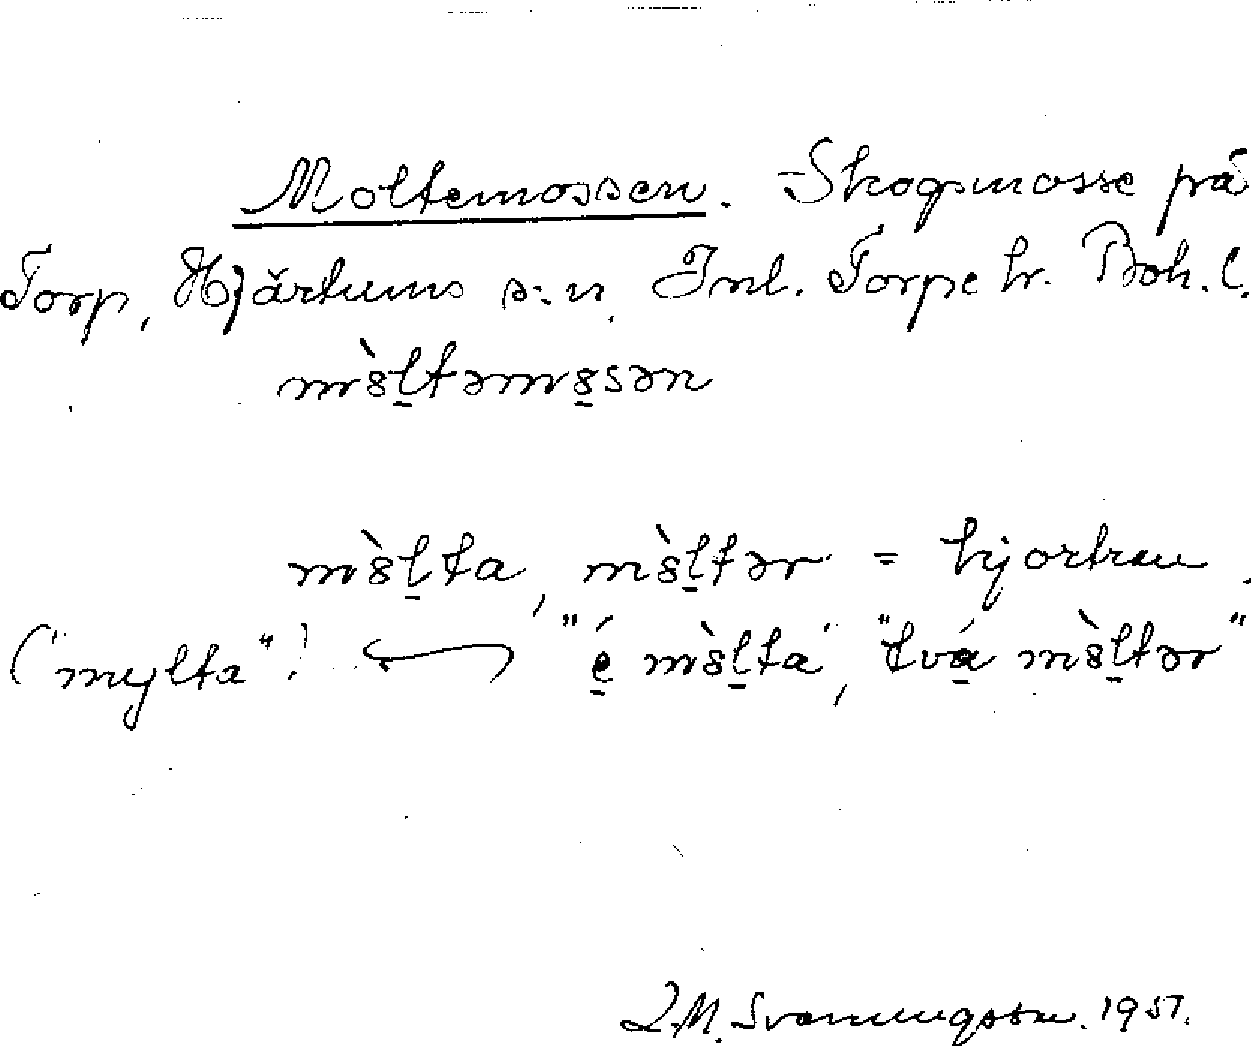 Moltemossen. Skogsmosse på
Torp, Hjärtums s:n, Inl. Torpe hr. Boh. l.
mò̀8l̠təm8̠sən
m8̀l̠ta, m8̀l̠tər = hjortron.
("mylta"! "é̠ m8̀l̠ta", "två̠ m8̀l̠tər"
D.M. Svenningsson. 1957.